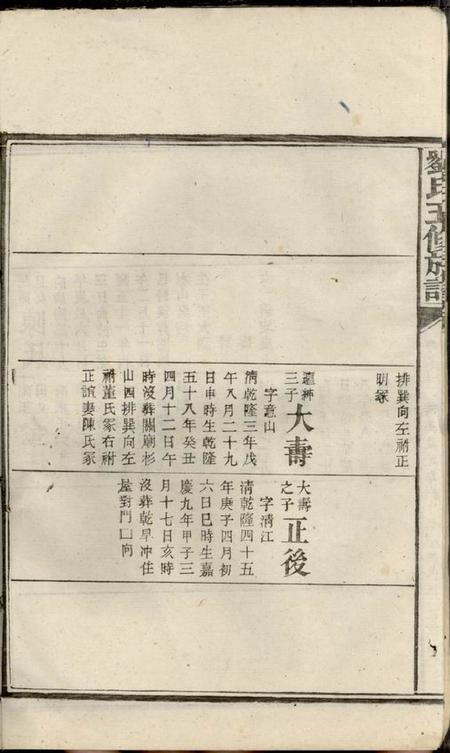 劉氏五修族譜
排巽向左祔正
明冢
三子
大壽
字意山
清乾隆三年戊
午八月二十九
日申時生乾隆
五十八年癸丑
四月十二日午
時沒葬關廟杉
山四排巽向左
祔董氏冢右祔
正誼妻陳氏冢
大壽
之子
正後
字清江
清乾隆四十五
年庚子四月初
六日巳時生嘉
慶九年甲子三
月十七日亥時
沒葬乾早冲住
屋對門向